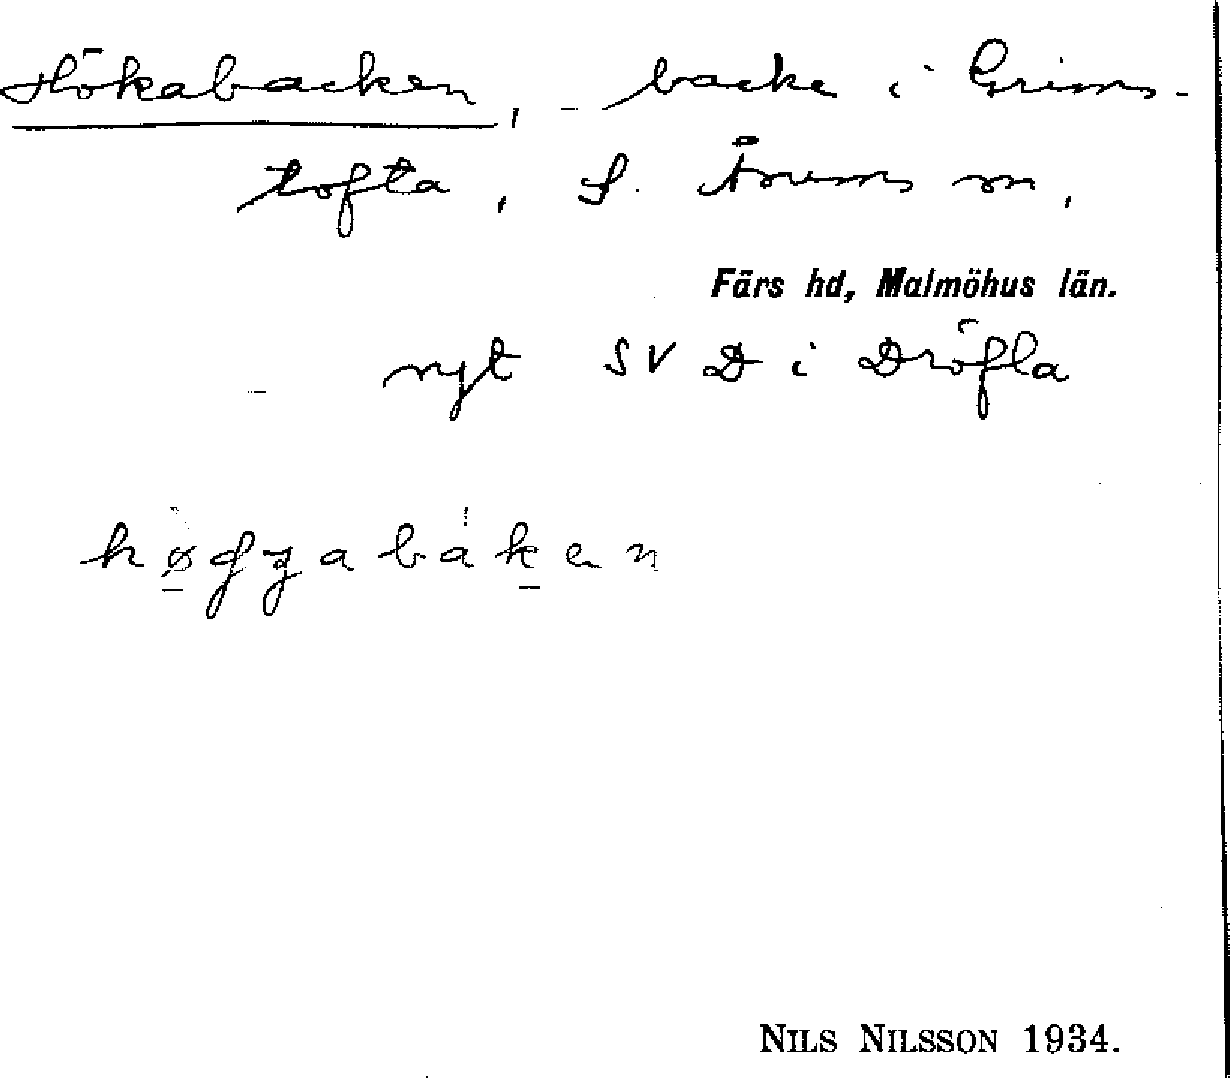 Hökabacken, backe i Grims-
tofta, S. Åsums sn,
Färs hd, Malmöhus län.
nyt SV D i Dröfla
NILS NILSSON 1934.